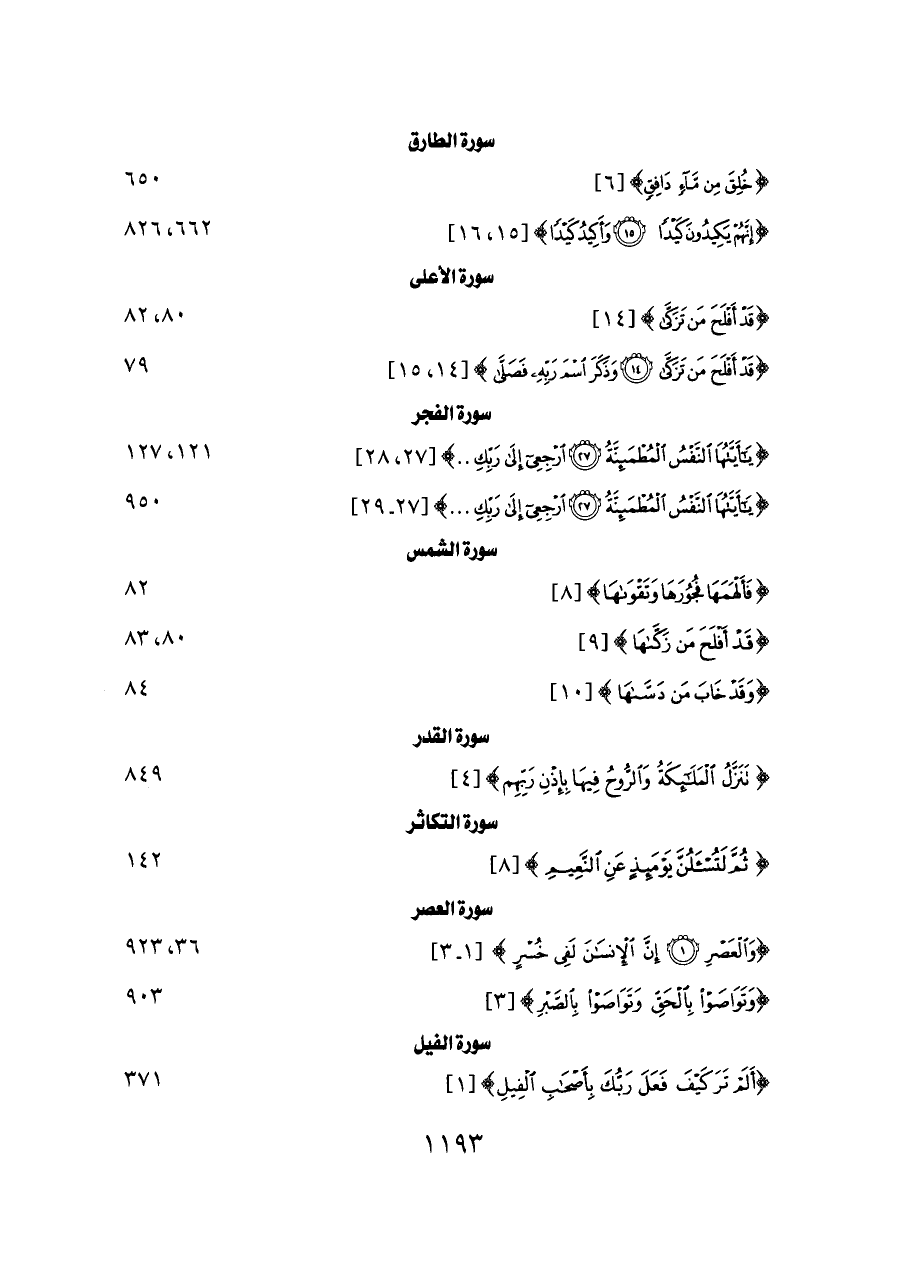 سورة الطارق
﴿خُلِقَ مِن مَّآءٍ دَافِقٍ﴾ [٦] ٦٥٠
﴿إِنَّهُمْ يَكِيدُونَ كَيْدًا ۝١٥ وَأَكِيدُ كَيْدًا﴾ [١٥، ١٦] ٦٦٢، ٨٢٦
سورة الأعلى
﴿قَدْ أَفْلَحَ مَن تَزَكَّىٰ﴾ [١٤] ٨٠، ٨٢
﴿قَدْ أَفْلَحَ مَن تَزَكَّىٰ ۝١٤ وَذَكَرَ ٱسْمَ رَبِّهِۦ فَصَلَّىٰ﴾ [١٤، ١٥] ٧٩
سورة الفجر
﴿يَـٰٓأَيَّتُهَا ٱلنَّفْسُ ٱلْمُطْمَئِنَّةُ ۝٢٧ ٱرْجِعِىٓ إِلَىٰ رَبِّكِ ..﴾ [٢٧، ٢٨] ١٢١، ١٢٧
﴿يَـٰٓأَيَّتُهَا ٱلنَّفْسُ ٱلْمُطْمَئِنَّةُ ۝٢٧ ٱرْجِعِىٓ إِلَىٰ رَبِّكِ ...﴾ [٢٧ـ ٢٩] ٩٥٠
سورة الشمس
﴿فَأَلْهَمَهَا فُجُورَهَا وَتَقْوَىٰهَا﴾ [٨] ٨٢
﴿قَدْ أَفْلَحَ مَن زَكَّىٰهَا﴾ [٩] ٨٠، ٨٣
﴿وَقَدْ خَابَ مَن دَسَّىٰهَا﴾ [١٠] ٨٤
سورة القدر
﴿تَنَزَّلُ ٱلْمَلَـٰٓئِكَةُ وَٱلرُّوحُ فِيهَا بِإِذْنِ رَبِّهِم﴾ [٤] ٨٤٩
سورة التكاثر
﴿ثُمَّ لَتُسْـَٔلُنَّ يَوْمَئِذٍ عَنِ ٱلنَّعِيمِ﴾ [٨] ١٤٢
سورة العصر
﴿وَٱلْعَصْرِ ۝١ إِنَّ ٱلْإِنسَـٰنَ لَفِى خُسْرٍ﴾ [١ـ ٣] ٣٦، ٩٢٣
﴿وَتَوَاصَوْا۟ بِٱلْحَقِّ وَتَوَاصَوْا۟ بِٱلصَّبْرِ﴾ [٣] ٩٠٣
سورة الفيل
﴿أَلَمْ تَرَ كَيْفَ فَعَلَ رَبُّكَ بِأَصْحَـٰبِ ٱلْفِيلِ﴾ [١] ٣٧١
١١٩٣